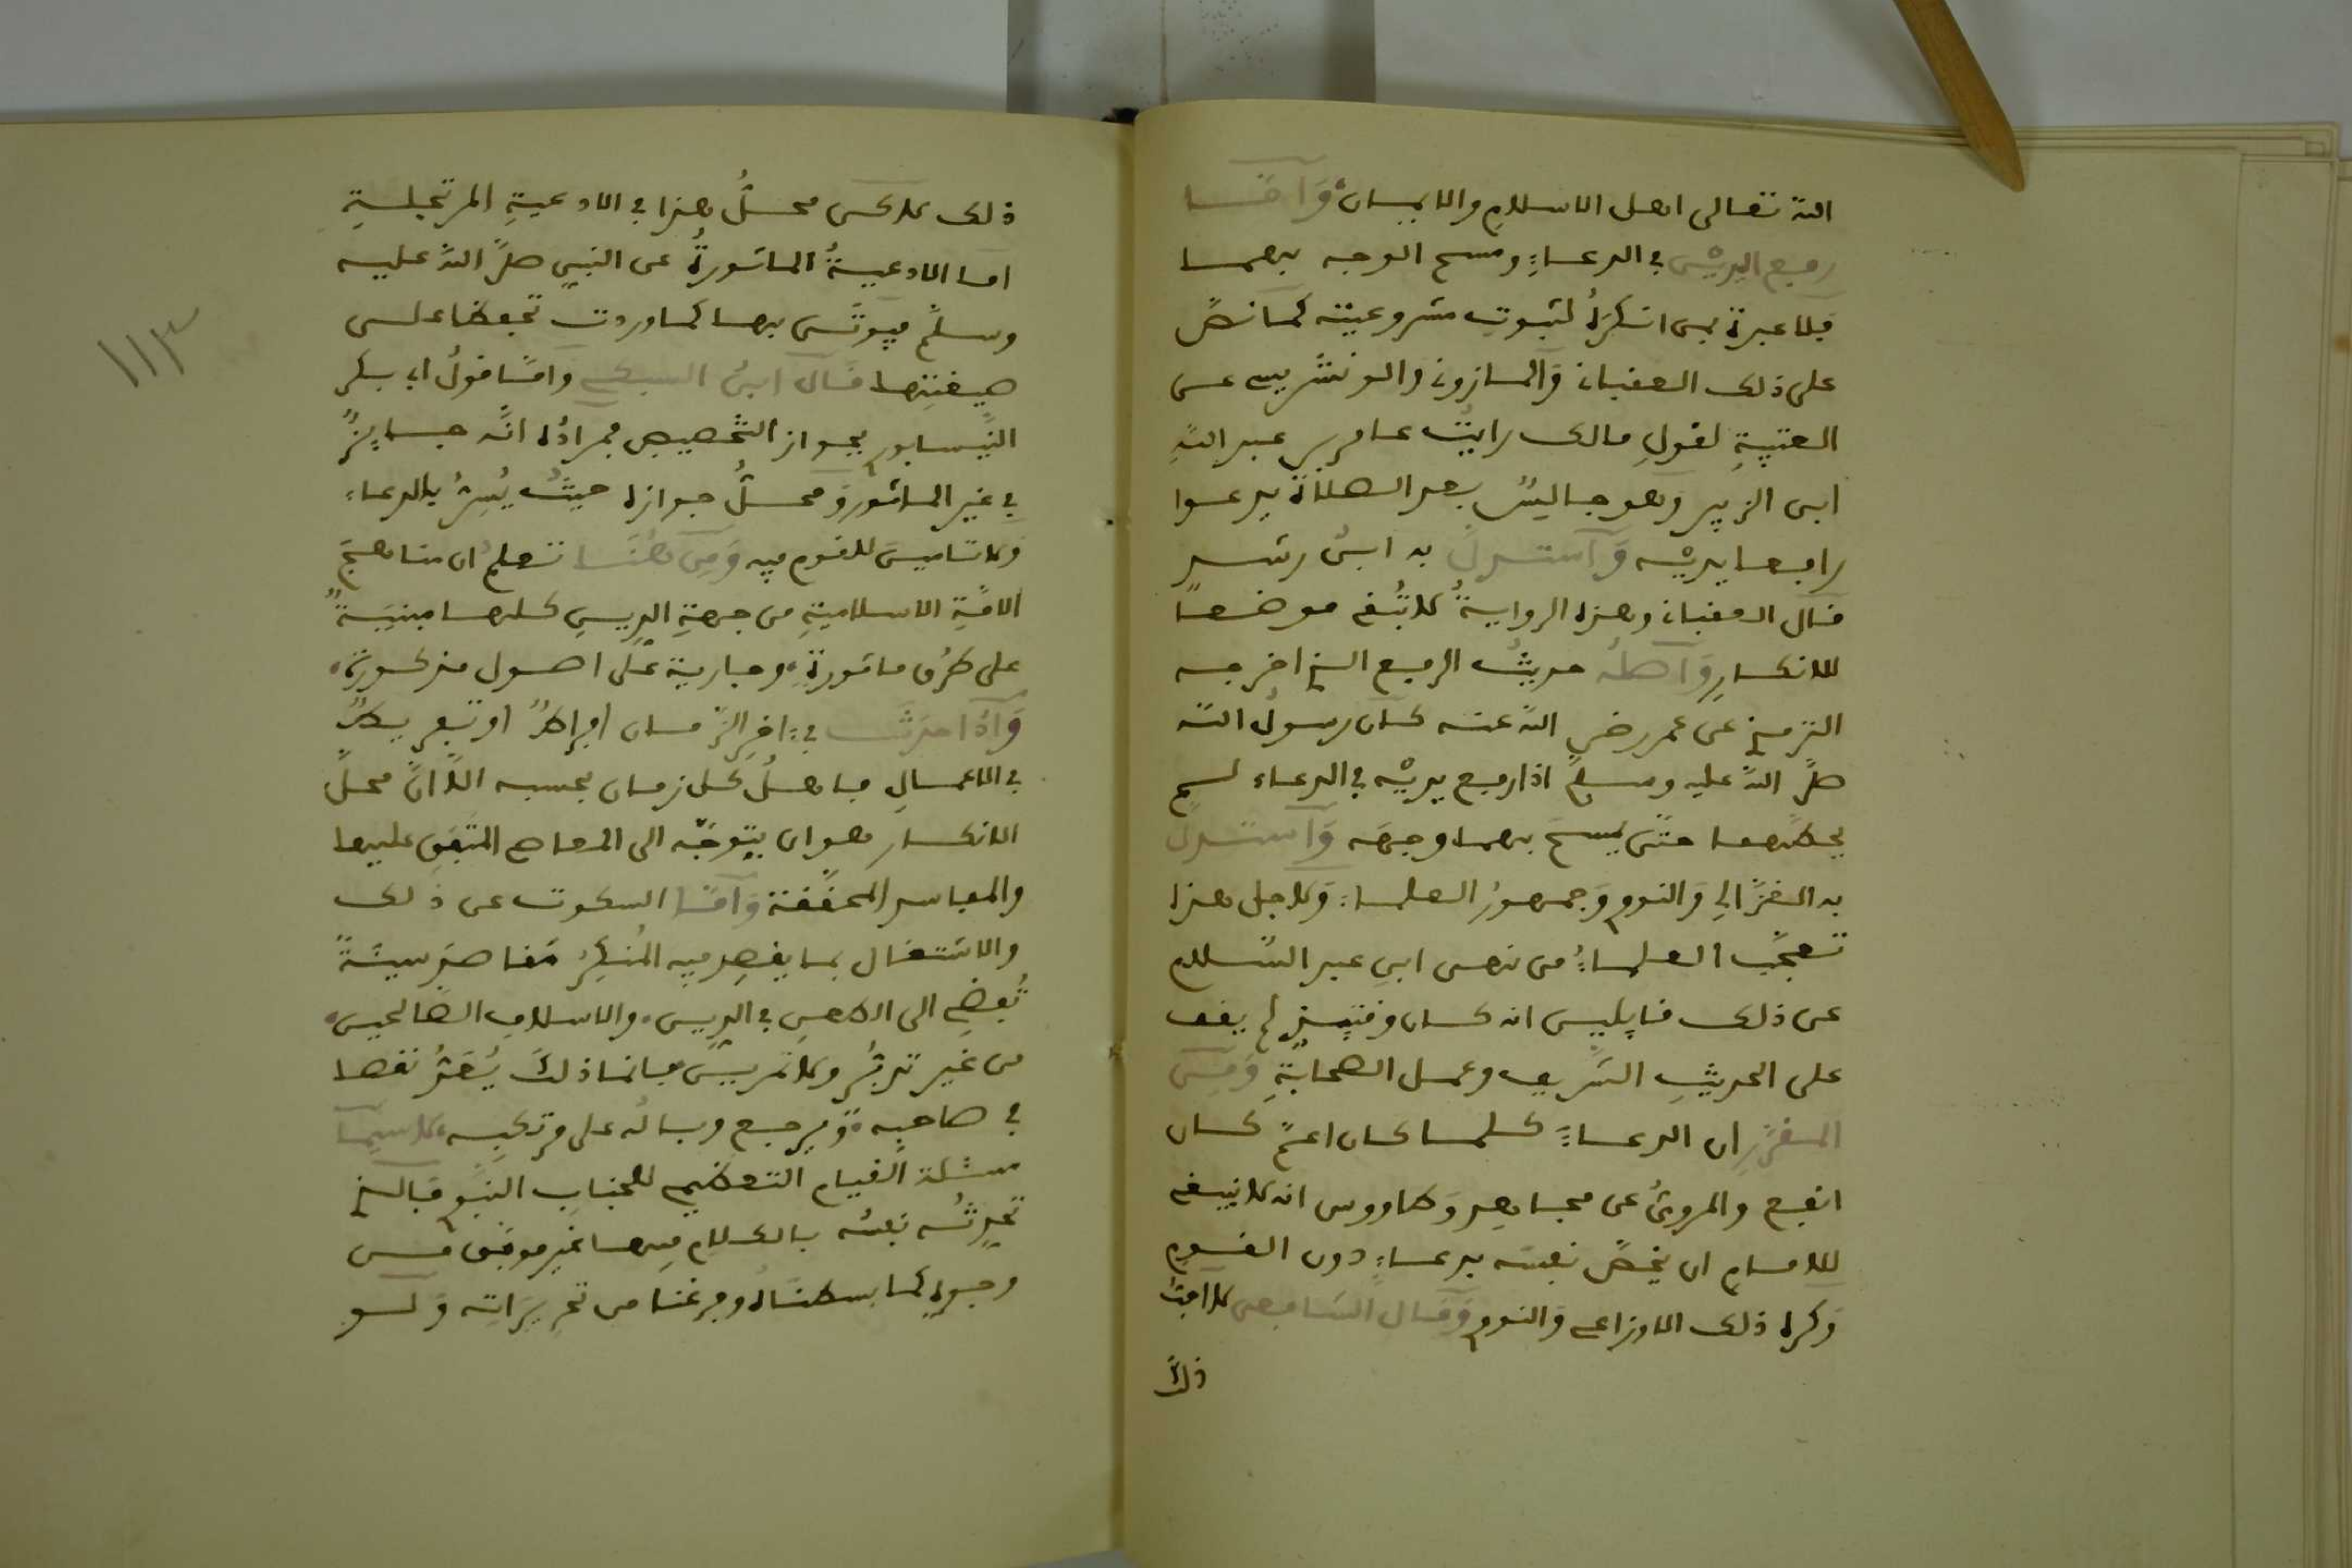 الله تعالى اهل الاسلام والايمان وَأمّا
رفع اليديْن في الدعاءِ ومسح الوجه بهما
فلا عبرة بمن انكرَهُ لثبوتِ مشروعيته كما نصّ
على ذلك العقباني وَالمازوني والونشريسي عن
العتبيةِ لقولِ مالك رايتُ عامر بن عبد اللهِ
ابن الزبير وهو جالسٌ بعد الصلاة يدعوا
رافعا يديْه وَاستدلّ به ابنُ رشد
قال العقباني وهذه الروايةُ لا تُبقي موضعا
للانكارِ وَاصلُه حديثُ الرفع الذي اخرجه
الترمذي عن عمر رضي اللهُ عنه كان رسولُ الله
صلّى اللهُ عليه وسلّم اذا رفع يديْه في الدعاء لم
يحطّهما حتّى يمسحَ بهما وجهَه وَاستدلّ
به الغزّالِي وَالنووي وَجمهورُ العلماء وَلاجل هذا
تعجّب العلماءُ من نهي ابنِ عبد السّلام
عن ذلك قايلين انه كان وقتئِذٍ لم يقف
على الحديثِ الشّريف وعمل الصحابةِ وَمِن
المقرّرِ ان الدعاءَ كلما كان اعمّ كان
انفع والمرويُّ عن مجاهدٍ وَطاووس انه لا ينبغي
للامام ان يخصّ نفسَه بدعاءٍ دون القوم
وَكره ذلك الاوزاعي وَالنووي وَقال الشافعي لا احبّ
ذلكَ
ذلك لاكن محلُّ هذا في الادعيةِ المرتجلةِ
اما الادعيةُ الماثورةُ عن النبيِ صلّى اللهُ عليه
وسلّم فيوتَى بها كما وردت تحفظا على
صيغتِها قال ابنُ السبكي وَامّا قولُ ابي بكر
النّيسابوري بجوازِ التّخصيصِ فمرادُه انَّه جايزٌ
في غير الماثورِ وَمحلُّ جوازه حيثُ يُسِرُّ بالدعاء
وَلا تامينَ للقوم فيه وَمِن هُنَا تعلمُ ان مناهجَ
الامّةِ الاسلاميةِ من جهةِ الدِّينِ كلها مبنيَّةٌ
على طرُق ماثورةٍ وجاريةٌ على اصول مذكورةٍ
وَاذا حدَثَ في اخِر الزّمان افراطٌ او تفريطٌ
في الاعمالِ فاهلُ كل زمان بحسبه الّا انّ محلَّ
الانكار هو ان يتوجّه الى المصالح المتّفَقِ عليها
والمفاسد المحقَّقة وَامّا السكوت عن ذلك
والاشتغال بما يقصِد فيه المُنكِرُ مَقاصدَ سيّئةً
تُفضِي الى الطعنِ في الدِّين والاسلافِ الصّالحين
من غير تدبُّرٍ ولا تمرينٍ فانّما ذلكَ يُعَدُّ نقصا
في صاحبِه وَيرجع وبالُه على مرتكبِه لا سيّما
مسئلة القيام التعظيم للجنابِ النّبوي فالذي
تحدِّثُه نفسُه بالكلامِ فيها غيرِ موفّق من
وجوهٍ كما بسطناهُ وفرغنا من تحريرَاتِه وَلو
١١٣